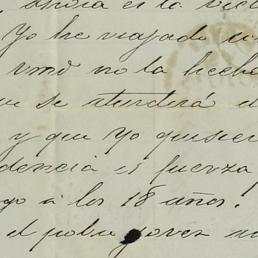 ahora es la
Yo he viajado
vmd no la hecho
se aturdirá
y que Yo quisier
dencia es fuerza
go á los 18 años!
el pobre joven